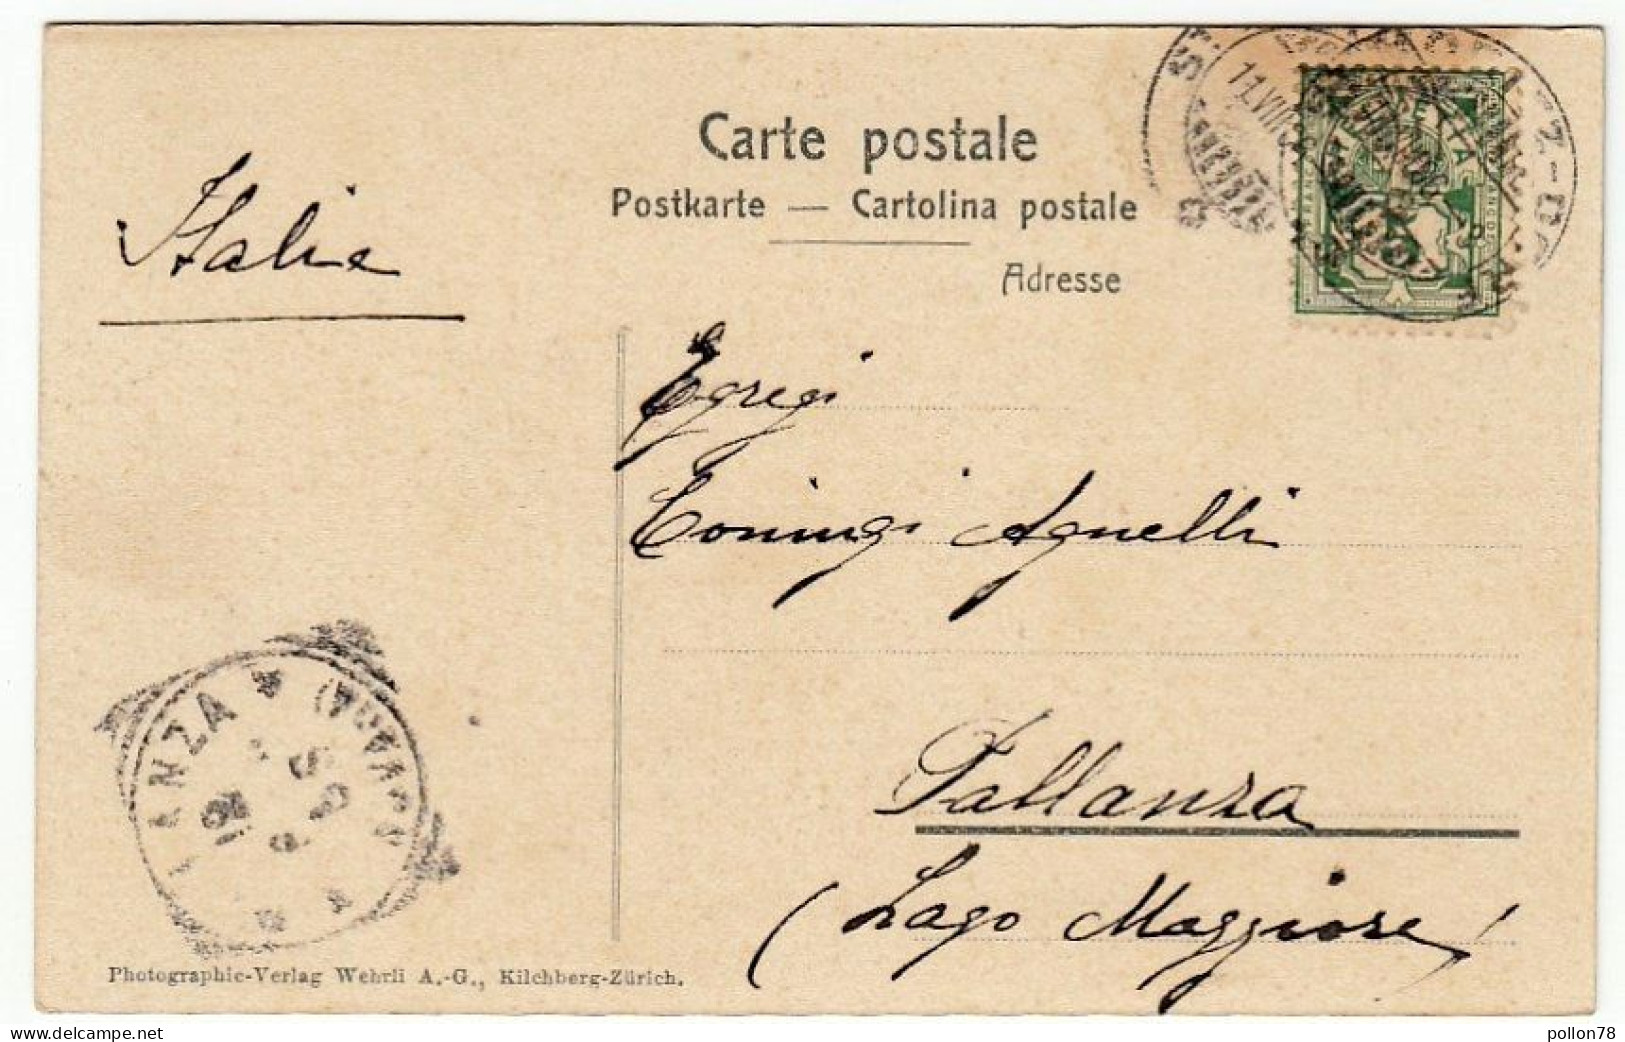 Carte postale
Postkarte — Cartolina postale
Adresse
Italie
Egregi
Coniugi Agnelli
Pallanza
(Lago Maggiore)
ANZA
(NOVARA)
11.VIII
FRANCO
Photographie-Verlag Wehrli A.-G., Kilchberg-Zürich.
delcampe.net
pollon78